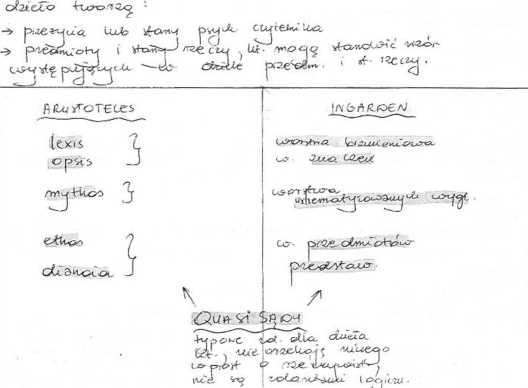 dzieło tworzą:
→ przeżycia lub stany psych czytelnika
→ przedmioty i stany rzeczy, kt. mogą stanowić wzór
występujących w dziele przedm. i st. rzeczy.
ARYSTOTELES
lexis
opsis
mythos
ethos
dianoia
INGARDEN
warstwa brzmieniowa
w. znaczeń
warstwa
schematyzowanych wygl.
w. przedmiotów
przedstaw.
QUASI SĄDY
typowe zd. dla dzieła
lit., nie orzekają niczego
wprost o rzeczywistości,
nie są zdaniami logicz.